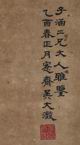 子涵二兄大人雅鑒
乙酉春正月愙齋吳大澂